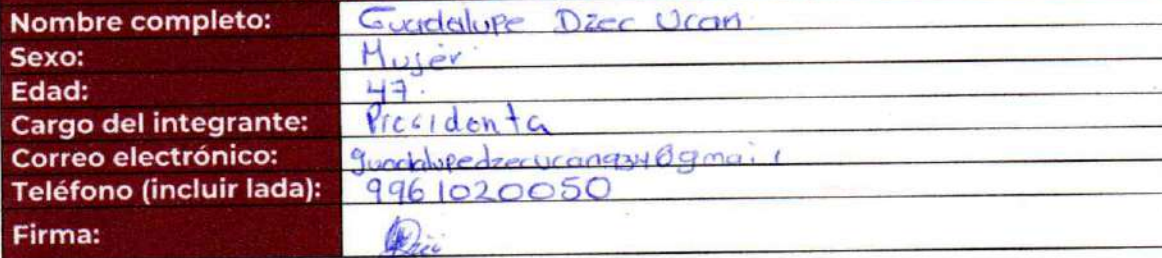 Nombre completo: Guadalupe Dzec Ucan
Sexo: Mujer
Edad: 47.
Cargo del integrante: Presidenta
Correo electrónico: guadalupedzecucan934@gmail
Teléfono (incluir lada): 9961020050
Firma: